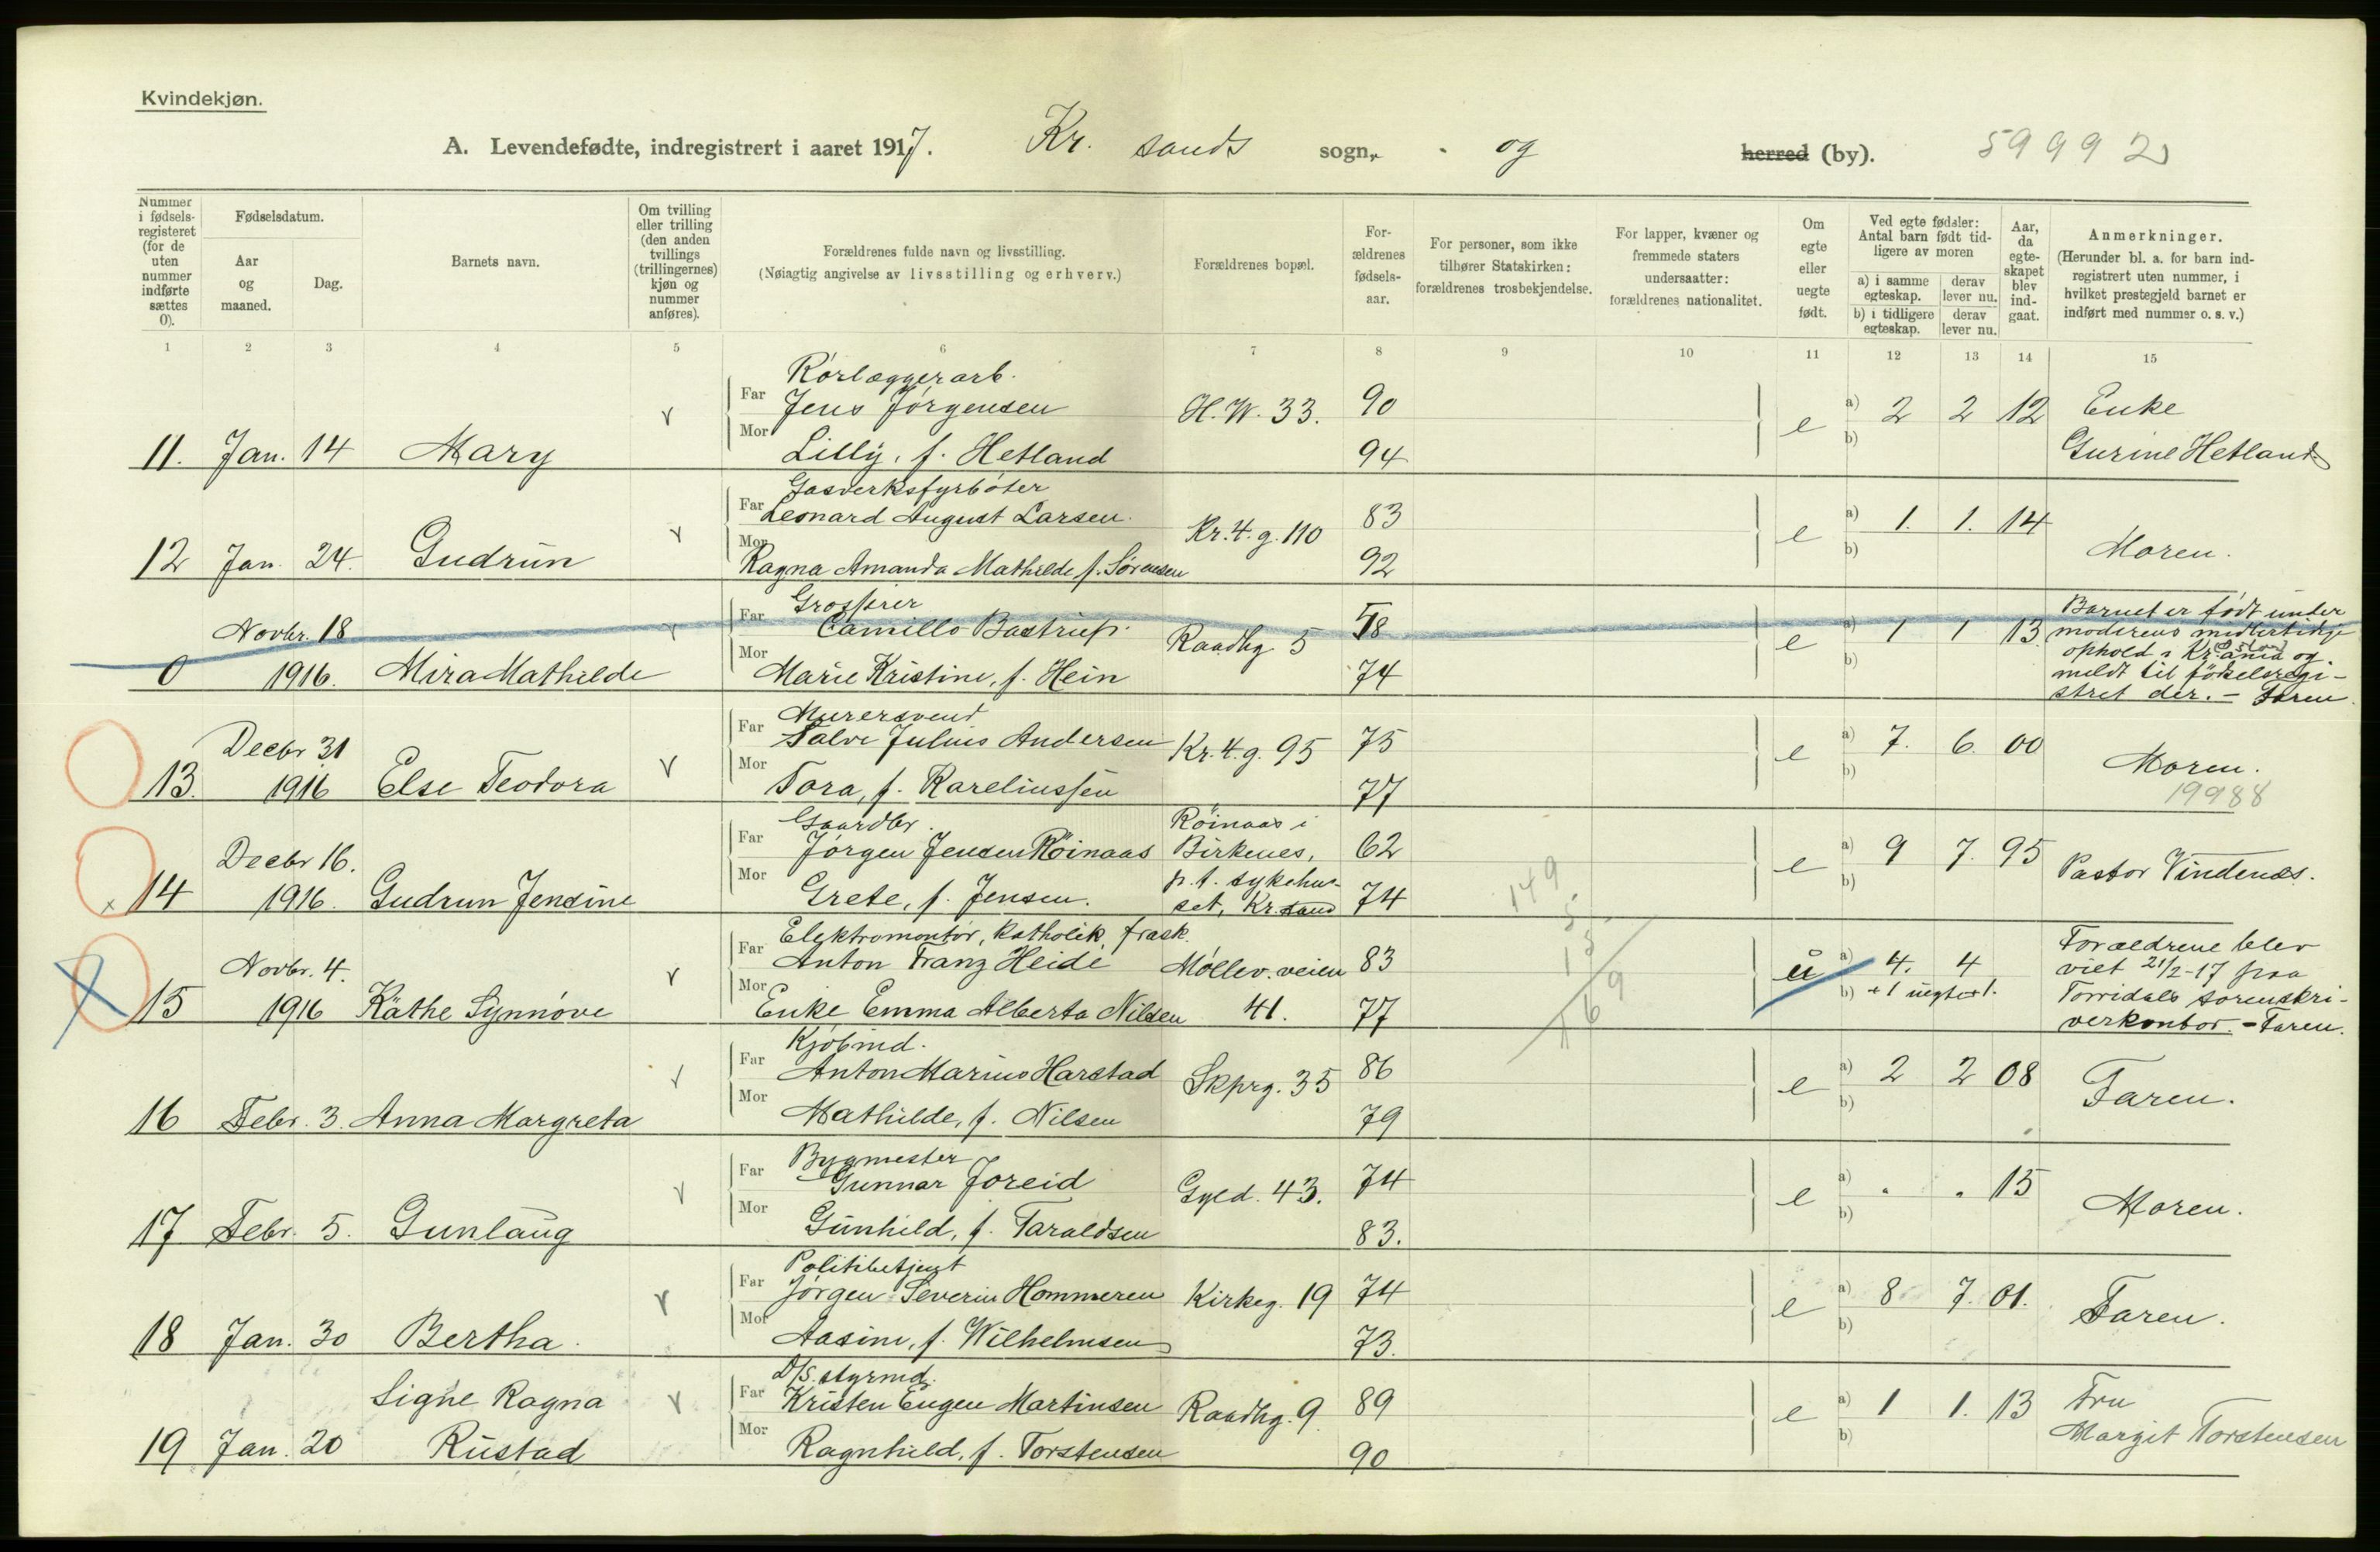 Kvindekjøn.
A. Levendefødte, indregistrert i aaret 1917. Kr. sands sogn, og herred (by). 59992
Nummer i fødselsregisteret (for de uten nummer indførte sættes 0).
Fødselsdatum.
Aar og maaned.
Dag.
Barnets navn.
Om tvilling eller trilling (den anden tvillings (trillingernes) kjøn og nummer anføres).
Forældrenes fulde navn og livsstilling.
(Nøiagtig angivelse av livsstilling og erhverv.)
Forældrenes bopæl.
Forældrenes fødselsaar.
For personer, som ikke tilhører Statskirken: forældrenes trosbekjendelse.
For lapper, kvæner og fremmede staters undersaatter: forældrenes nationalitet.
Om egte eller uegte født.
Ved egte fødsler: Antal barn født tidligere av moren
a) i samme egteskap. derav lever nu.
b) i tidligere egteskap. derav lever nu.
Aar, da egteskapet blev indgaat.
Anmerkninger.
(Herunder bl. a. for barn indregistrert uten nummer, i hvilket prestegjeld barnet er indført med nummer o. s. v.)
1 2 3 4 5 6 7 8 9 10 11 12 13 14 15
Rørlæggerarb.
Far Jens Jørgensen H. W. 33. 90 e a) 2 2 12 Enke
11. Jan. 14 Mary Mor Lilly, f. Hetland 94 b) Gurine Hetland
Gasverksfyrbøter
Far Leonard August Larsen. Kr. 4. g. 110 83 e a) 1. 1. 14
12 Jan. 24. Gudrun Mor Ragna Amanda Mathilde f. Sørensen 92 b) Moren.
Grosserer
Novbr. 18 Far Camillo Bastrup. Raadhg 5 58 e a) 1 1 13 Barnet er født under
moderens midlertidige
ophold i Kr.ania og
0 1916. Mira Mathilde Mor Marie Kristine, f. Hein 74 b) meldt til fødselsregi-
stret der. - Faren.
Murersvend
Decbr 31 Far Salve Julius Andersen Kr. 4. g. 95 75 e a) 7. 6. 00
13. 1916 Else Teodora Mor Tora, f. Kareliussen 77 b) Moren.
19988
Gaardbr. Röinaas i
Decbr 16. Far Jørgen Jensen Röinaas Birkenes, 62 e a) 9 7. 95
p. t. sykehus-
x 14 1916. Gudrun Jensine Mor Grete, f. Jensen. set, Kr.sand 74 b) Pastor Vindenes.
149
5
15
169
Elektromontør, katholik, frask.
Novbr. 4. Far Anton Franz Heide Møllev. veien 83 u a) 4. 4 Forældrene blev
viet 21/2-17 paa
15 1916 Käthe Synnøve Mor Enke Emma Alberta Nilsen 41. 77 b) +1 uegte +1. Torridals sorenskri-
verkontor. - Faren.
Kjøbmd.
Far Anton Marius Harstad Skprg. 35 86 e a) 2 2 08
16 Febr. 3. Anna Margreta Mor Mathilde, f. Nilsen 79 b) Faren.
Bygmester
Far Gunnar Joreid Gyld. 43. 74 e a) " " 15
17 Febr. 5. Gunlaug Mor Gunhild, f. Taraldsen 83. b) Moren.
Politibetjent
Far Jørgen Severin Hommeren Kirkeg. 19 74 e a) 8 7. 01.
18 Jan. 30 Bertha. Mor Aasine, f. Wilhelmsen 73. b) Faren.
D/S. styrmd.
Signe Ragna Far Kristen Eugen Martinsen Raadhg. 9. 89 e a) 1 1. 13 Fru
19 Jan. 20 Rustad Mor Ragnhild, f. Torstensen 90 b) Margit Torstensen